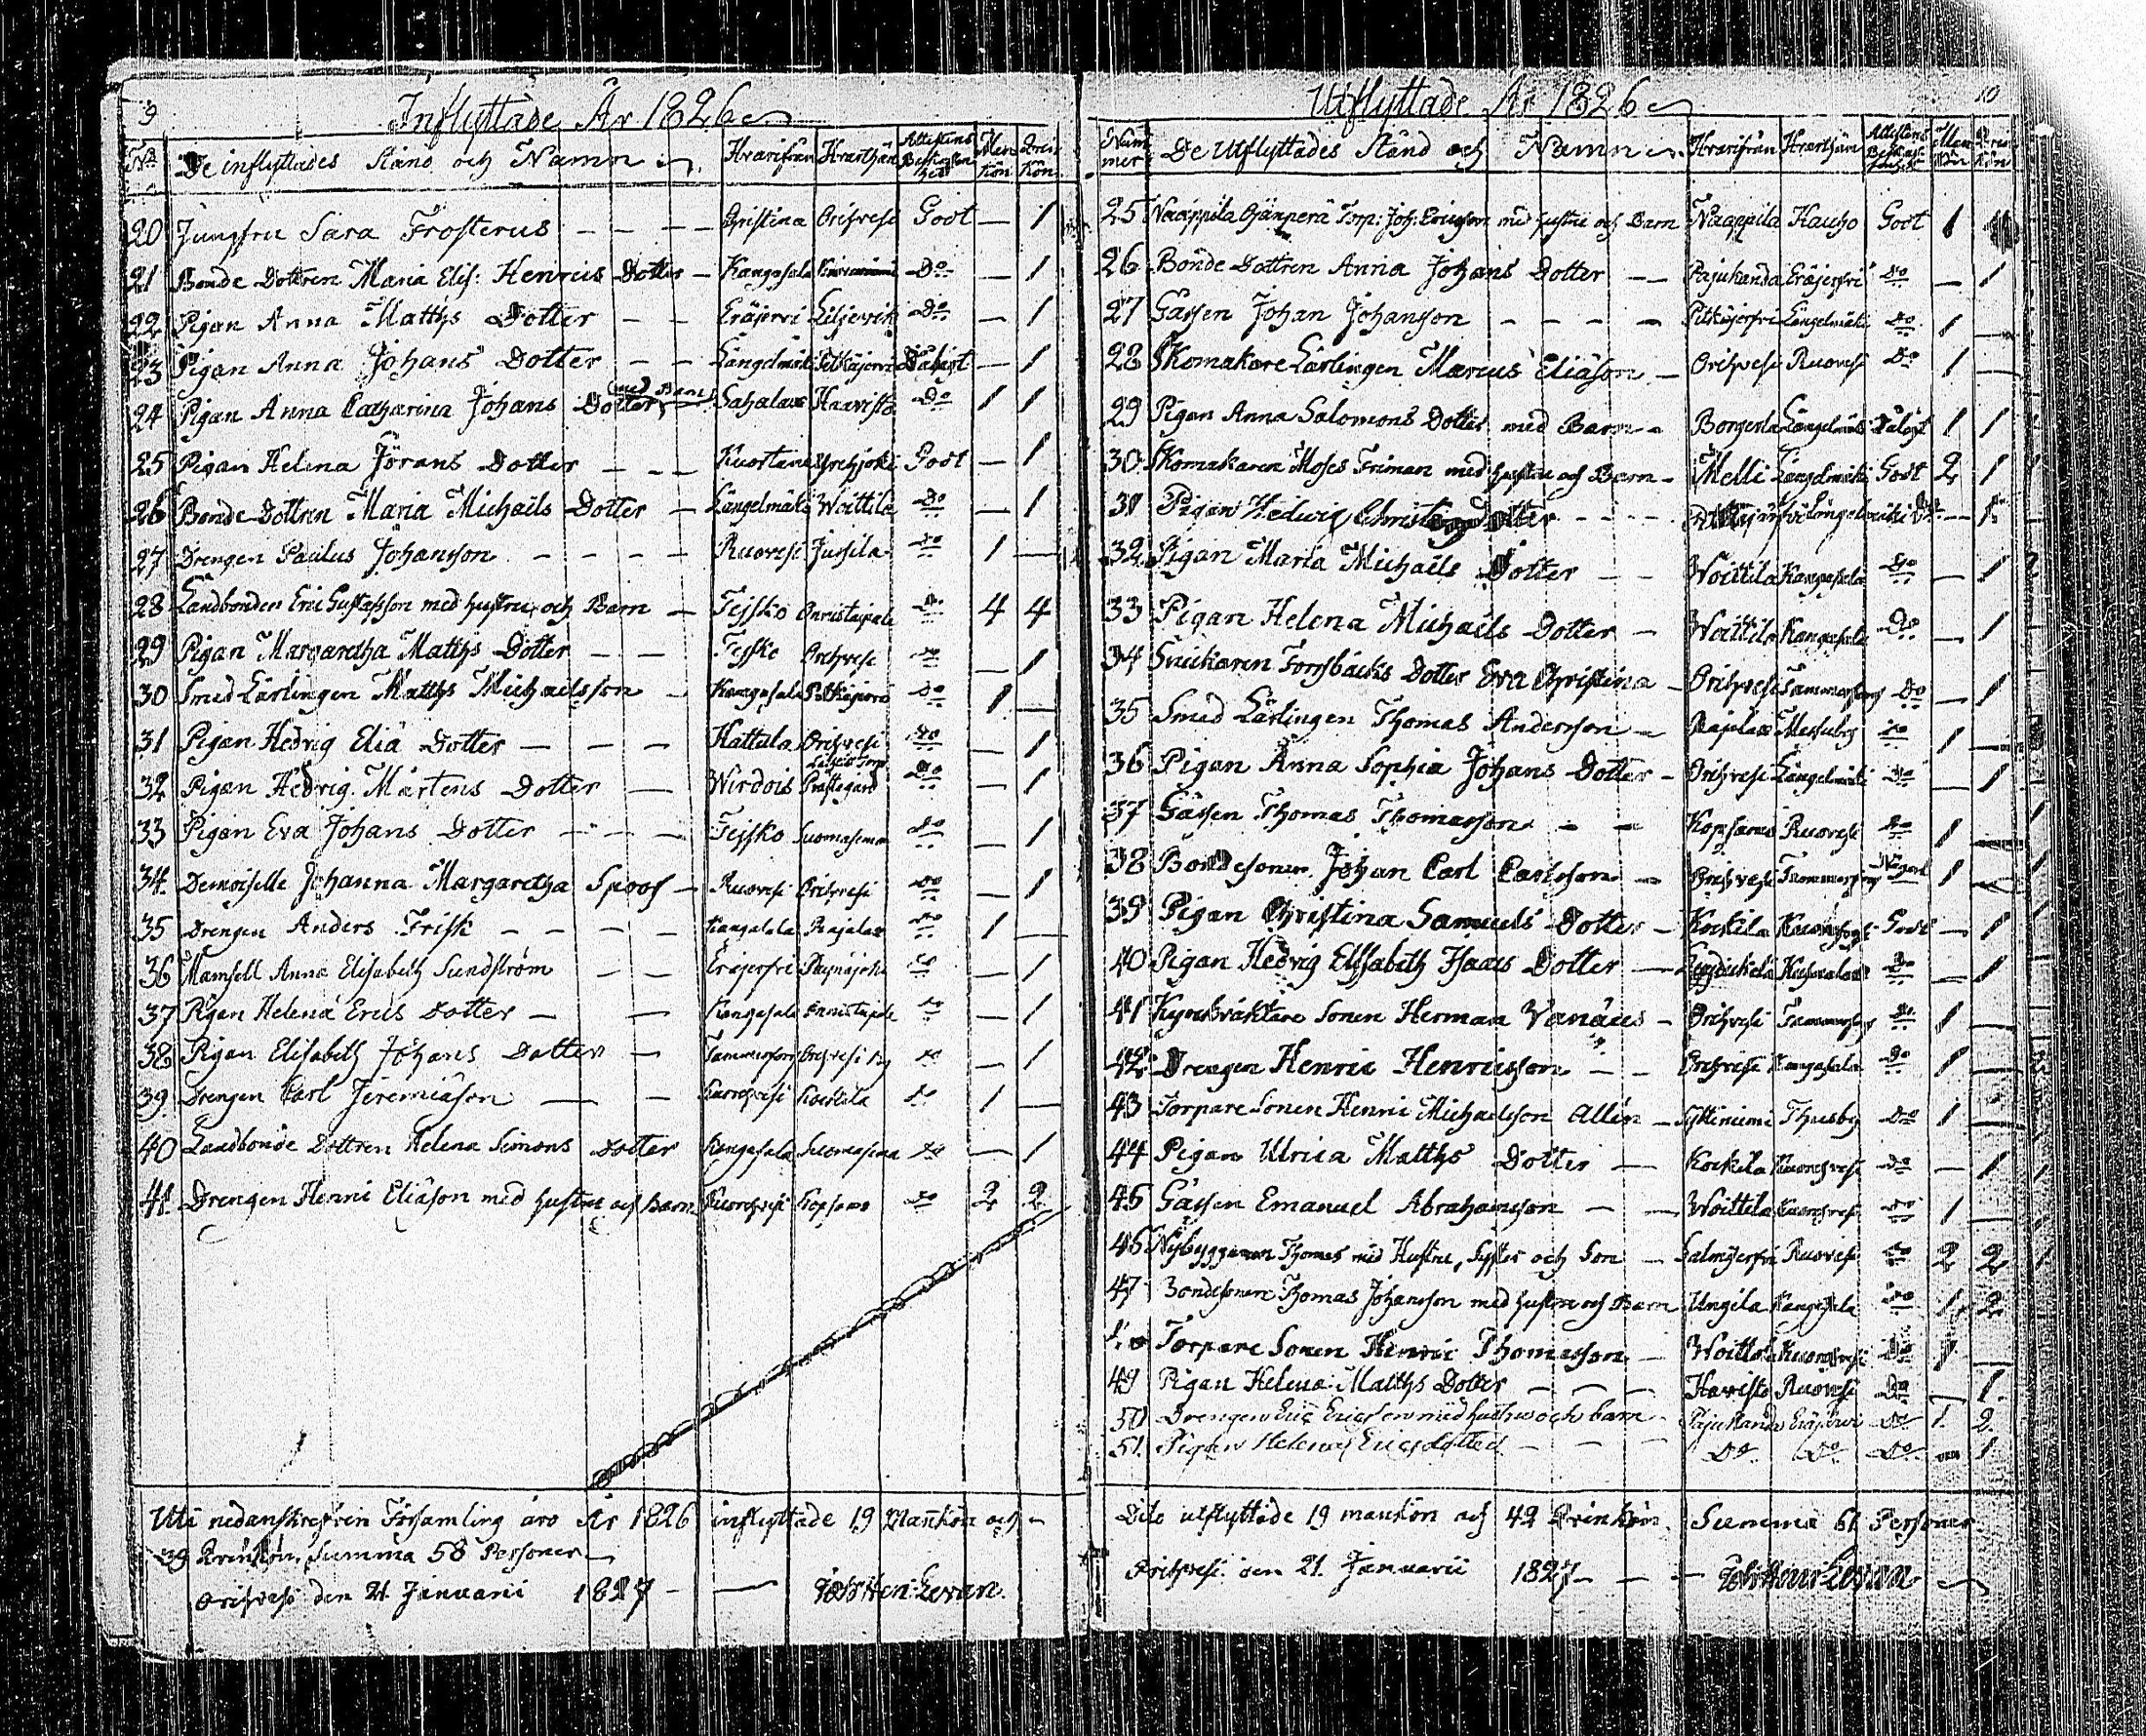 9
Inflyttade År 1826
No De inflyttades Stånd och Namn Hvarifrån Hvarthän Attestens Beskaffenhet Man Kön Qvin Kön
20 Jungfru Sara Frosterus — — — Christina Orihvesi Godt — 1
21 Bonde Dottren Maria Elis: Henrics Dotter — Kangasala Do — 1
22 Pigan Anna Matths Dotter — — Eräjervi Do — 1
23 Pigan Anna Johans Dotter — — Längelmäki Pitkäjervi — 1
24 Pigan Anna Catharina Johans Dotter med Barn Sahalax Haavisto Do 1 1
25 Pigan Helena Jörans Dotter — — — Kuortane Godt — 1
26 Bonde Dottren Maria Michaels Dotter — Längelmäki Woittila Do — 1
27 Drengen Paulus Johansson — — — — Ruovesi Jussila Do 1 —
28 Landbonden Eric Gustafsson med hustru och Barn — Tejsko Onnistaipale Do 4 4
29 Pigan Margaretha Matths Dotter — — Tejsko Orihvesi Do — 1
30 Smed Lärlingen Matths Michaelsson — Kangasala Pitkäjervi Do 1 —
31 Pigan Hedvig Eliä Dotter — — — Hattula Orihvesi Do — 1
32 Pigan Hedvig Mårtens Dotter — Wirdois Prästegård Do — 1
33 Pigan Eva Johans Dotter — — — Tejsko Suomasema Do — 1
34 Demoiselle Johanna Margaretha Spoof — Ruovesi Orihvesi Do — 1
35 Drengen Anders Frisk — — — — Kangasala Pajalax Do 1 —
36 Mamsell Anna Elisabeth Sundström — — Eräjerfvi Do — 1
37 Pigan Helena Erics Dotter — — Kangasala Onnistaipale Do — 1
38 Pigan Elisabeth Johans Dotter — Tammerfors Orihvesi By Do — 1
39 Drengen Carl Jeremiäson — — Kuorehvesi Kockila Do 1 —
40 Landbonde Dottren Helena Simons Dotter Kangasala Suomasema Do — 1
41 Drengen Henric Eliäson med hustru och Barn Kuorehvesi Kopsamo Do 2 2
Uti nedanskrefven Församling äro År 1826 inflyttade 19 Mankön och —
39 Qvinkön, Summa 58 Personer —
Orihvesi den 21 Januarii 1827 — — Joh: Hen: Levan.
10
Utflyttade År 1826
Nummer De Utflyttades Stånd och Namn Hvarifrån Hvarthän Attestens Beskaffenhet Man Kön Qvin Kön
25 Naappila Torp: Joh: Ericsson med hustru och Barn Naappila Hauho Godt 1
26 Bonde Dottren Anna Johans Dotter — — Pajukanda Eräjerfvi Do — 1
27 Gässen Johan Johanson — — — — Pitkäjerfvi Längelmäki Do 1 —
28 Skomakare Lärlingen Marcus Eliäson — Orihvesi Ruovesi Do 1 —
29 Pigan Anna Salomons Dotter med Barn — Längelmäki 1 1
30 Skomakaren Moses Friman med hustru och Barn — Melli Längelmäki Godt 2 1
31 Pigan Hedwig Dotter — — — — Längelmäki Do — 1
32 Pigan Maria Michaels Dotter — — Woittila Kangasala Do — 1
33 Pigan Helena Michaels Dotter — Woittila Kangasala Do — 1
34 Snickaren Forssbäcks Dotter Eva Christina — Orihvesi Tammerfors Do — 1
35 Smed Lärlingen Thomas Andersson — Pajalax Messuby Do 1 —
36 Pigan Anna Sophia Johans Dotter — Orihvesi Längelmäki Do — 1
37 Gässen Thomas Thomasson — — Kopsamo Ruovesi Do 1 —
38 Bondesonen Johan Carl Carlsson — Orihvesi Tammerfors 1 —
39 Pigan Christina Samuels Dotter — Kockila Godt — 1
40 Pigan Hedvig Elisabeth Isaacs Dotter — Do — 1
41 Kyrkväktare Sonen Herman Vanäus — Orihvesi Tammerfors Do 1 —
42 Drengen Henric Henricsson — — Orihvesi Kangasala Do 1 —
43 Torpare Sonen Henric Michaelsson Allén — Thusby Do 1 —
44 Pigan Ulrica Matths Dotter — Kockila Kuorehvesi Do — 1
45 Gässen Emanuel Abrahamsson — — Woittila Kuorehvesi Do 1 —
46 Nybyggaren Thomas med Hustru, Syster och Son — Ruovesi Do 2 2
47 Bondesonen Thomas Johansson med hustru och Barn Ungila Kangasala Do 1 2
Torpare Sonen Henric Thomasson — Woittila Kuorehvesi Do 1 —
49 Pigan Helena Matths Dotter — — — Havisto Ruovesi Do — 1
50 Drengen Eric Ericsson med hustru och barn — Pajukanda Eräjervi Do 1 2
51. Pigan Helena Ericsdotter — — — Do Do Do — 1
Dito utflyttade 19 mankön och 42 Qvinkön. Summa 61 Personer
Orihvesi den 21 Januarii 1827 — — — Joh: Henr: Levan